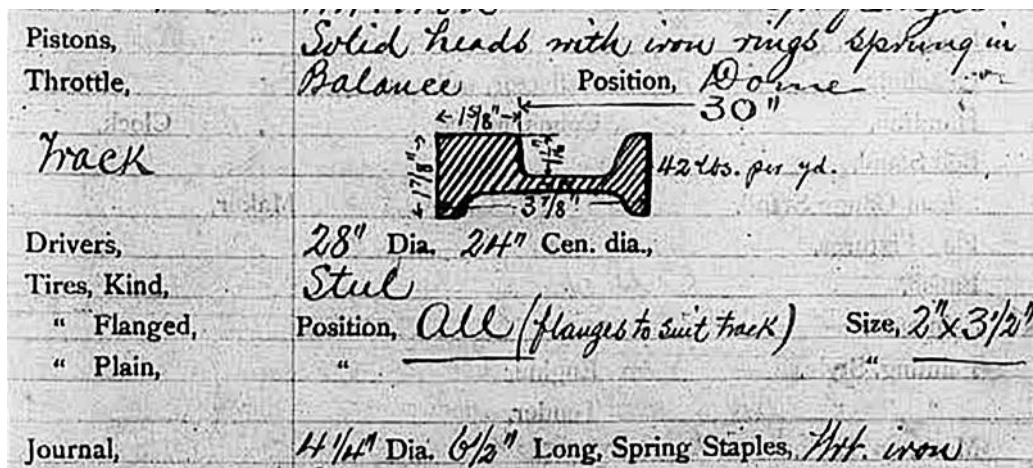 Pistons, Solid heads with iron rings sprung in
Throttle, Balance Position, Dome
30"
1 5/8"
Track
1 7/8"
42 lbs. per yd.
3 7/8"
Drivers, 28" Dia. 24" Cen. dia.,
Tires, Kind, Steel
" Flanged, Position, All (flanges to suit track) Size, 2" x 3 1/2"
" Plain, " "
Journal, 4 1/4" Dia. 6 1/2" Long, Spring Staples, Wrt. iron